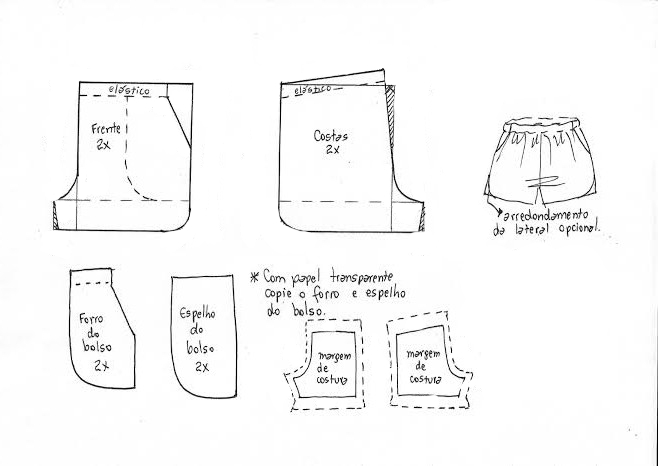 elástico
Frente
2x
elástico
Costas
2x
arredondamento
da lateral opcional.
Forro
do
bolso
2x
Espelho
do
bolso
2x
* Com papel transparente
copie o forro e espelho
do bolso.
margem
de
costura
margem
de
costura